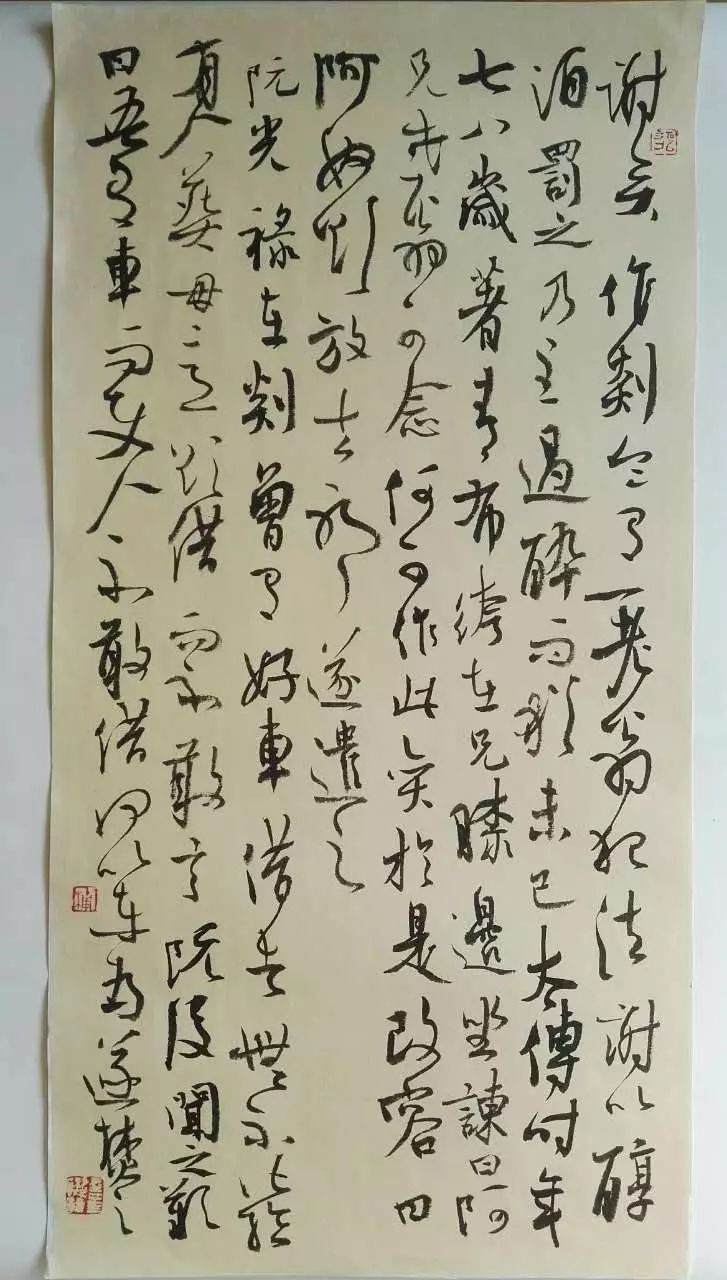 謝奕作剡令有一老翁犯法謝以醇
酒罰之乃至過醉而猶未已太傅時年
七八歲著青布絝在兄膝邊坐諫曰阿
兄老翁可念何可作此奕於是改容曰
阿奴欲放去邪遂遣之
阮光祿在剡曾有好車借者無不皆給
有人葬母意欲借而不敢言阮後聞之歎
曰吾有車而使人不敢借何以車為遂焚之